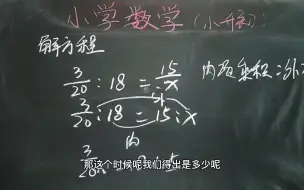 小学数学(小升初):
解方程
3/20 : 18 = 15/x
内项乘积=外
3/20 : 18 = 15 : x
外
内
3/20
那这个时候呢我们得出是多少呢